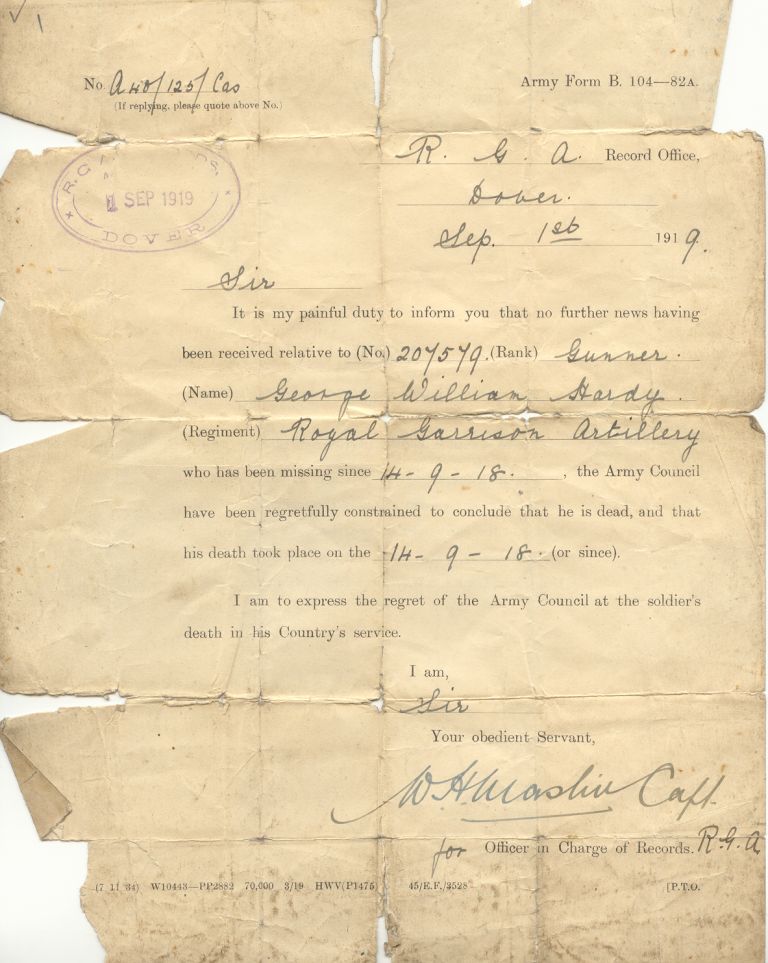 No A40/125/Cas
Army Form B. 104—82A.
(If replying, please quote above No.)
R. G. A. Record Office,
Dover.
Sep. 1st 1919.
R.G.
1 SEP 1919
DOVER
Sir
It is my painful duty to inform you that no further news having
been received relative to (No.) 207579. (Rank) Gunner.
(Name) George William Hardy.
(Regiment) Royal Garrison Artillery
who has been missing since 14-9-18. , the Army Council
have been regretfully constrained to conclude that he is dead, and that
his death took place on the 14-9-18. (or since).
I am to express the regret of the Army Council at the soldier's
death in his Country's service.
I am,
Sir
Your obedient Servant,
W H Capt.
for Officer in Charge of Records. R.G.A
(7 11 34) W10443—PP2882 70,000 3/19 HWV(P1475 45/E.F./3528 [P.T.O.